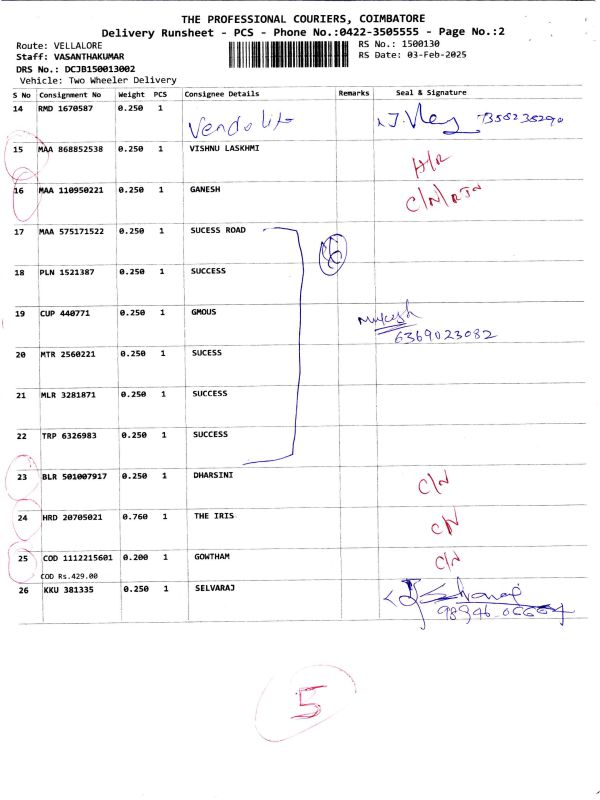 THE PROFESSIONAL COURIERS, COIMBATORE
Delivery Runsheet - PCS - Phone No.:0422-3505555 - Page No.:2
Route: VELLALORE
RS No.: 1500130
Staff: VASANTHAKUMAR
RS Date: 03-Feb-2025
DRS No.: DCJB150013002
Vehicle: Two Wheeler Delivery
S No Consignment No Weight PCS Consignee Details Remarks Seal & Signature
14 RMD 1670587 0.250 1
15 MAA 868852538 0.250 1 VISHNU LASKHMI H/R
16 MAA 110950221 0.250 1 GANESH C/N/RTN
17 MAA 575171522 0.250 1 SUCESS ROAD
18 PLN 1521387 0.250 1 SUCCESS
19 CUP 440771 0.250 1 GMOUS
6369023082
20 MTR 2560221 0.250 1 SUCESS
21 MLR 3281871 0.250 1 SUCCESS
22 TRP 6326983 0.250 1 SUCCESS
23 BLR 501007917 0.250 1 DHARSINI C/N
24 HRD 20705021 0.760 1 THE IRIS C/N
25 COD 1112215601 0.200 1 GOWTHAM C/N
COD Rs.429.00
26 KKU 381335 0.250 1 SELVARAJ
5